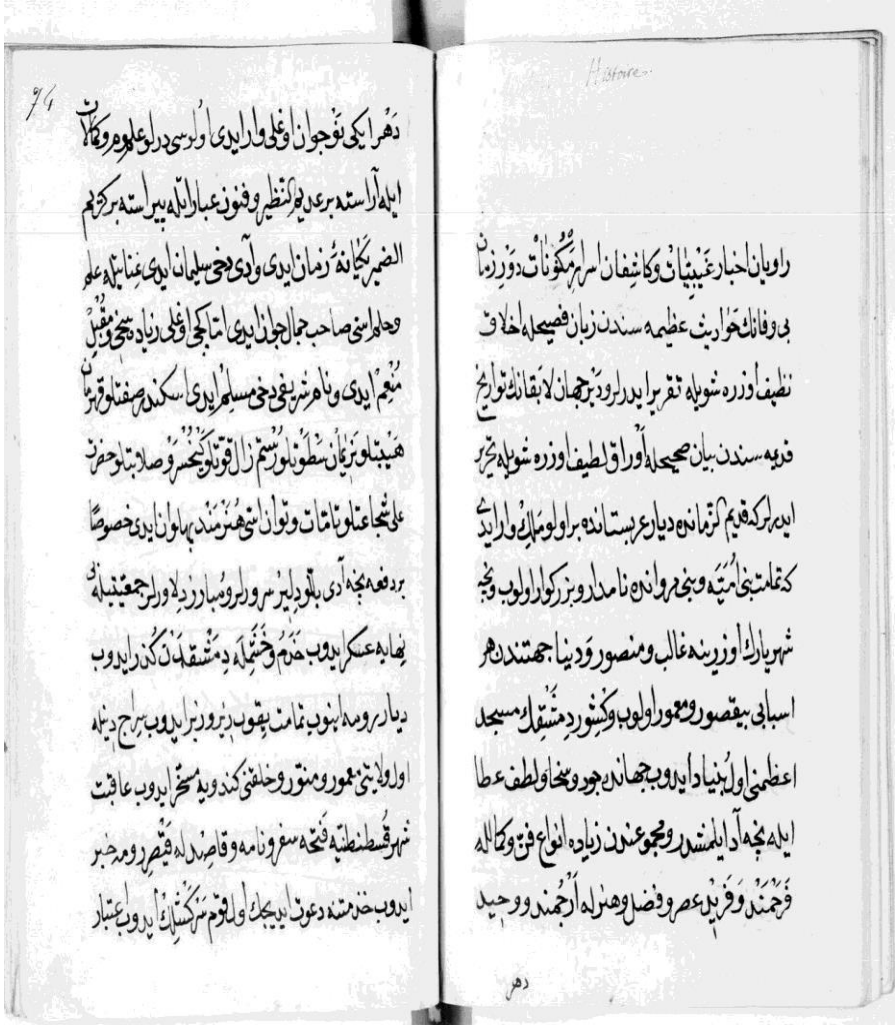 Histoire
راویان اخبار غَیْبِیّاتْ وکاشِفان اسرارِ مَکْنُونَاتْ دَوْرِ زمان
بی وفانك حَوَادِیث عظیمه سندن زبان فصیحله اخلاق
نظیف اوزره شویله تقریر ایدرلر ودَبَرِ جهان لابَقانك تواریخ
قدیمه سندن بیان صحیحله اَوْراق لطیف اوزره شویله تحریر
ایدرلر که قدیم الزمانده دیار عربستانده بر اولو مَلِكْ وار ایدی
که تمامت بنی اُمَیَّه وبنی مرواندە نامدار وبزرکوار اولوب ونیجه
شهریارلر اوزرینه غالب ومنصور ودنیا جهتندن هر
اسبابی بیقصور ومعمور اولوب وکِشْوَر دِمَشْقِكْ مسجد
اعظمنی اول بُنیاد ایدوب جهانده جود وسخا ولطف عطا
ایله نیجه آد ایلمشدر ومجموعندن زیاده انواع فرّ وکمالله
فَرَحْمَنْد وَفَریْدِ عصر وفضل وهنرله اَرْجُمند ووحید
دهر
74
دَهْر ایکی نَوْجوان اوغلی وار ایدی اولوسی درلو علوم وکمالات
ایله آراسته بر عدیم النظیر وفنون عباراتله پیراسته بر کریم
الضمیر یَکانهٔ زمان ایدی وآدی دخی سلیمان ایدی غنایله علم
وحلم اسی صاحب جمال جوان ایدی امّا کیجی اوغلی زیاده سخی ومُقْبِلْ
مُنْعِمْ ایدی ونام شریفی دخی مسلمه ایدی اسکندر صفتلو قهرمان
هَیْبتلو نریمان سَطْوَتلو رُسْتَم زال قوّتلو کَیْخُسْرَوْ صلابتلو حضرت
علی شجاعتلو تمامت وتوان اسی هُنَرْمَنْد پهلوان ایدی خصوصًا
بر دفعه نیجه آدی بللو دِلیر سرورلر ومُبارز دِلاورلر جمعیّتیله بی
نهایه عسکر ایدوب خَدَمُ وحَشَمِلَه دِمَشْقدَن کُذر ایدوب
دیار رومه اینوب تمامت یقوب زیر وزبر ایدوب سِراج دینله
اول ولایتی معمور ومنوّر وخلقنی کندویه مسخّر ایدوب عاقبت
شهر قُسطنطنیّه فَتْحه سفر ونامه وقاصدله قَیْصَرِ رومه خبر
ایدوب خذمتنه دعوت ایدیجك اول قوم سَرْکَشْلِكْ ایدوب اعتبار